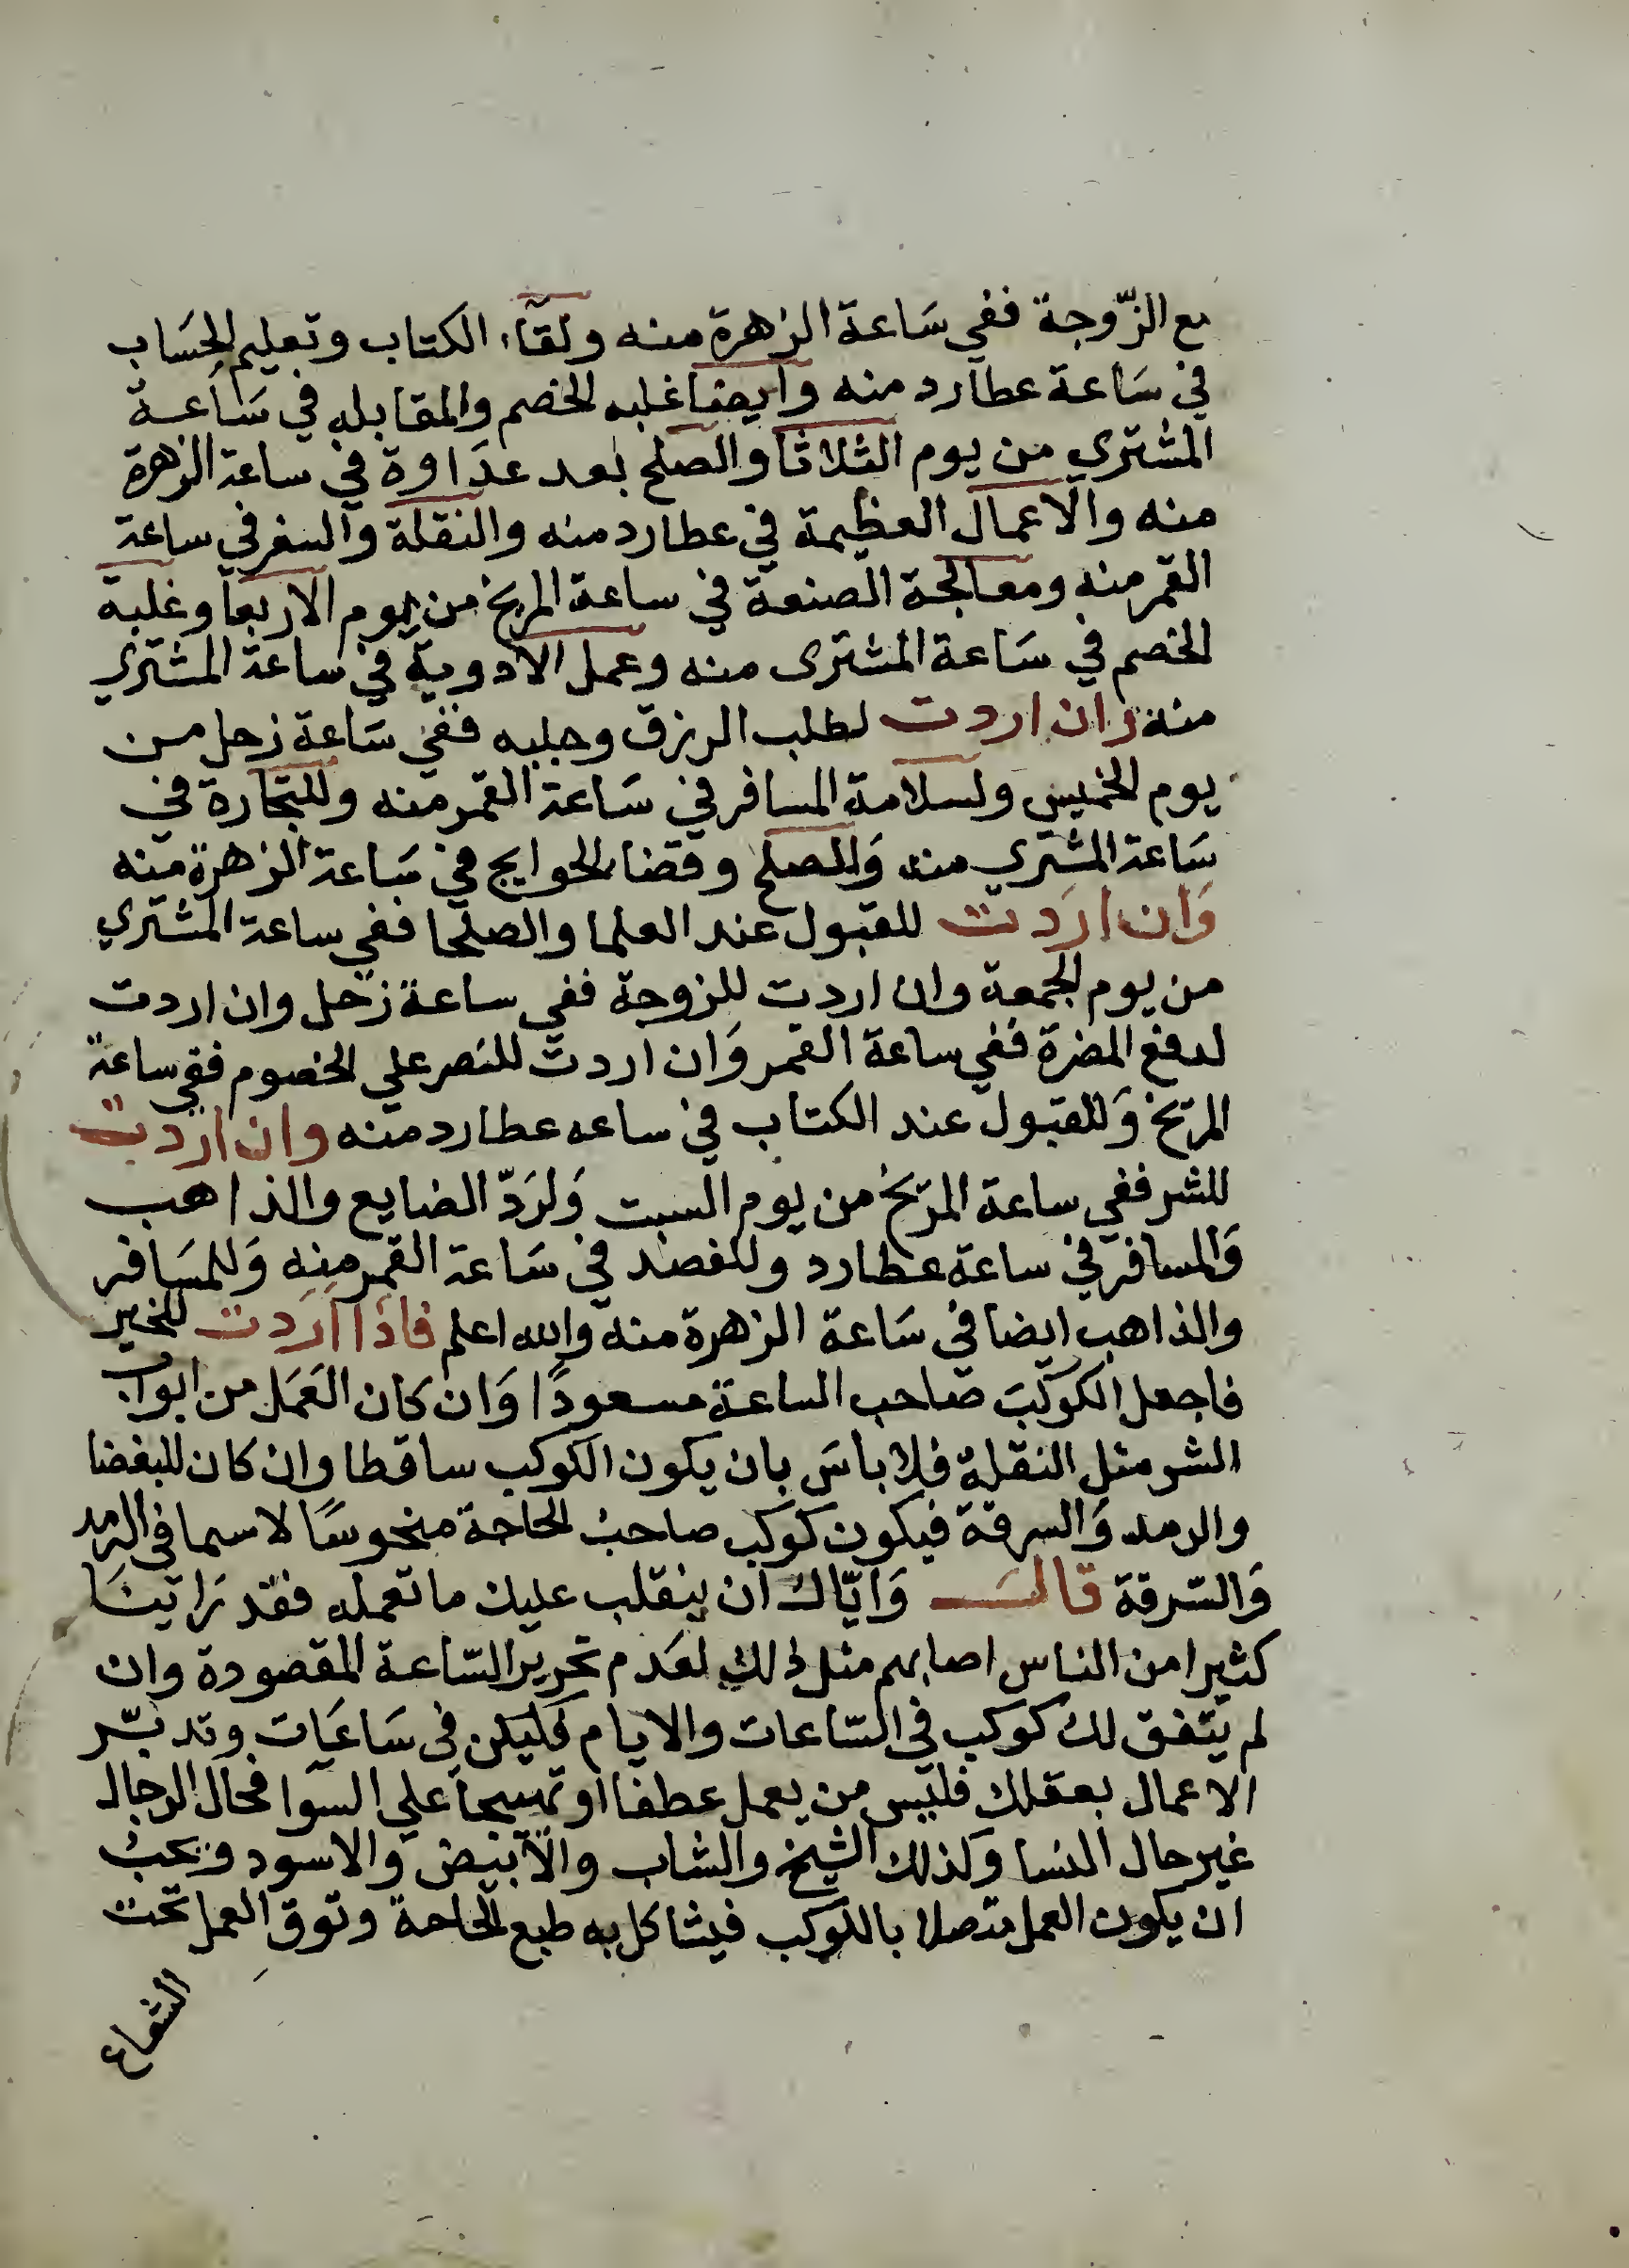 مع الزّوجة ففي سَاعة الزهرة منه ولقآء الكتاب وتعليم الحسَاب
في سَاعة عطارد منه وايضا غلبه الخصم والمقابله في سَاعة
المشتري من يوم الثلاثا والصلح بعد عدَاوة في ساعة الزهرة
منه والاعمال العظيمة في عطارد منه والنقلة والسفر في ساعة
القمر منه ومعالجة الصنعة في ساعة المريخ من يوم الاربعا وغلبة
الخصم في سَاعة المشترى منه وعمل الادوية في ساعة المشتري
منه وان اردت لطلب الرزق وجلبه ففي سَاعة زحل من
يوم الخميس ولسلامة المسافر في سَاعة القمر منه وللتجارة في
سَاعة المشتري منه وَللصلح وقضا الحوايج في سَاعة الزهرة منه
وَان ارَدت للقبول عند العلما والصلحا ففي ساعة المشتري
من يوم الجمعة وان اردت للزوجة ففي ساعة زحل وان اردت
لدفع المضرة ففي ساعة القمر وَان اردت للنصر علي الخصوم ففي ساعة
المريخ وَللقبول عند الكتاب في ساعه عطارد منه وان اردت
للشر ففي ساعة المريخ من يوم السبت وَلرَدّ الضايع والذاهب
وَالمسافر في ساعة عطارد وللفصد في سَاعة القمر منه وَللمسَافر
والذاهب ايضا في سَاعة الزهرة منه والله اعلم فاذا اَرَدت للخير
فاجعل الكوكبَ صَاحب الساعة مسعودًا وَان كان العَمَل من ابواب
الشر مثل النقلة فلا باسَ بان يكون الكوكب ساقطا وان كان للبغضا
والرمد وَالسرقة فيكون كوكب صاحب الحاجة منحوسًا لاسيما في الرمد
وَالسّرقة قالَ وَايّاك ان ينقلب عليك ما تعمله فقد رَايتُ
كثيرا من الناس اصابهم مثل ذلك لعَدم تحرير السّاعة المقصودة وان
لم يتفق لك كوكب في السّاعات والايام فَليكن في سَاعَات وتدبّر
الاعمال بعقلك فليس من يعمل عطفا او تهييجا علي السوا فحال الرجال
غير حال النسا وكذلك الشيخ والشاب والاَبيض والاسود ويجب
ان يكون العمل متصلا بالكوكب فيشاكل به طبع الحاجة وتوقِ العمل تحت
الشعاع